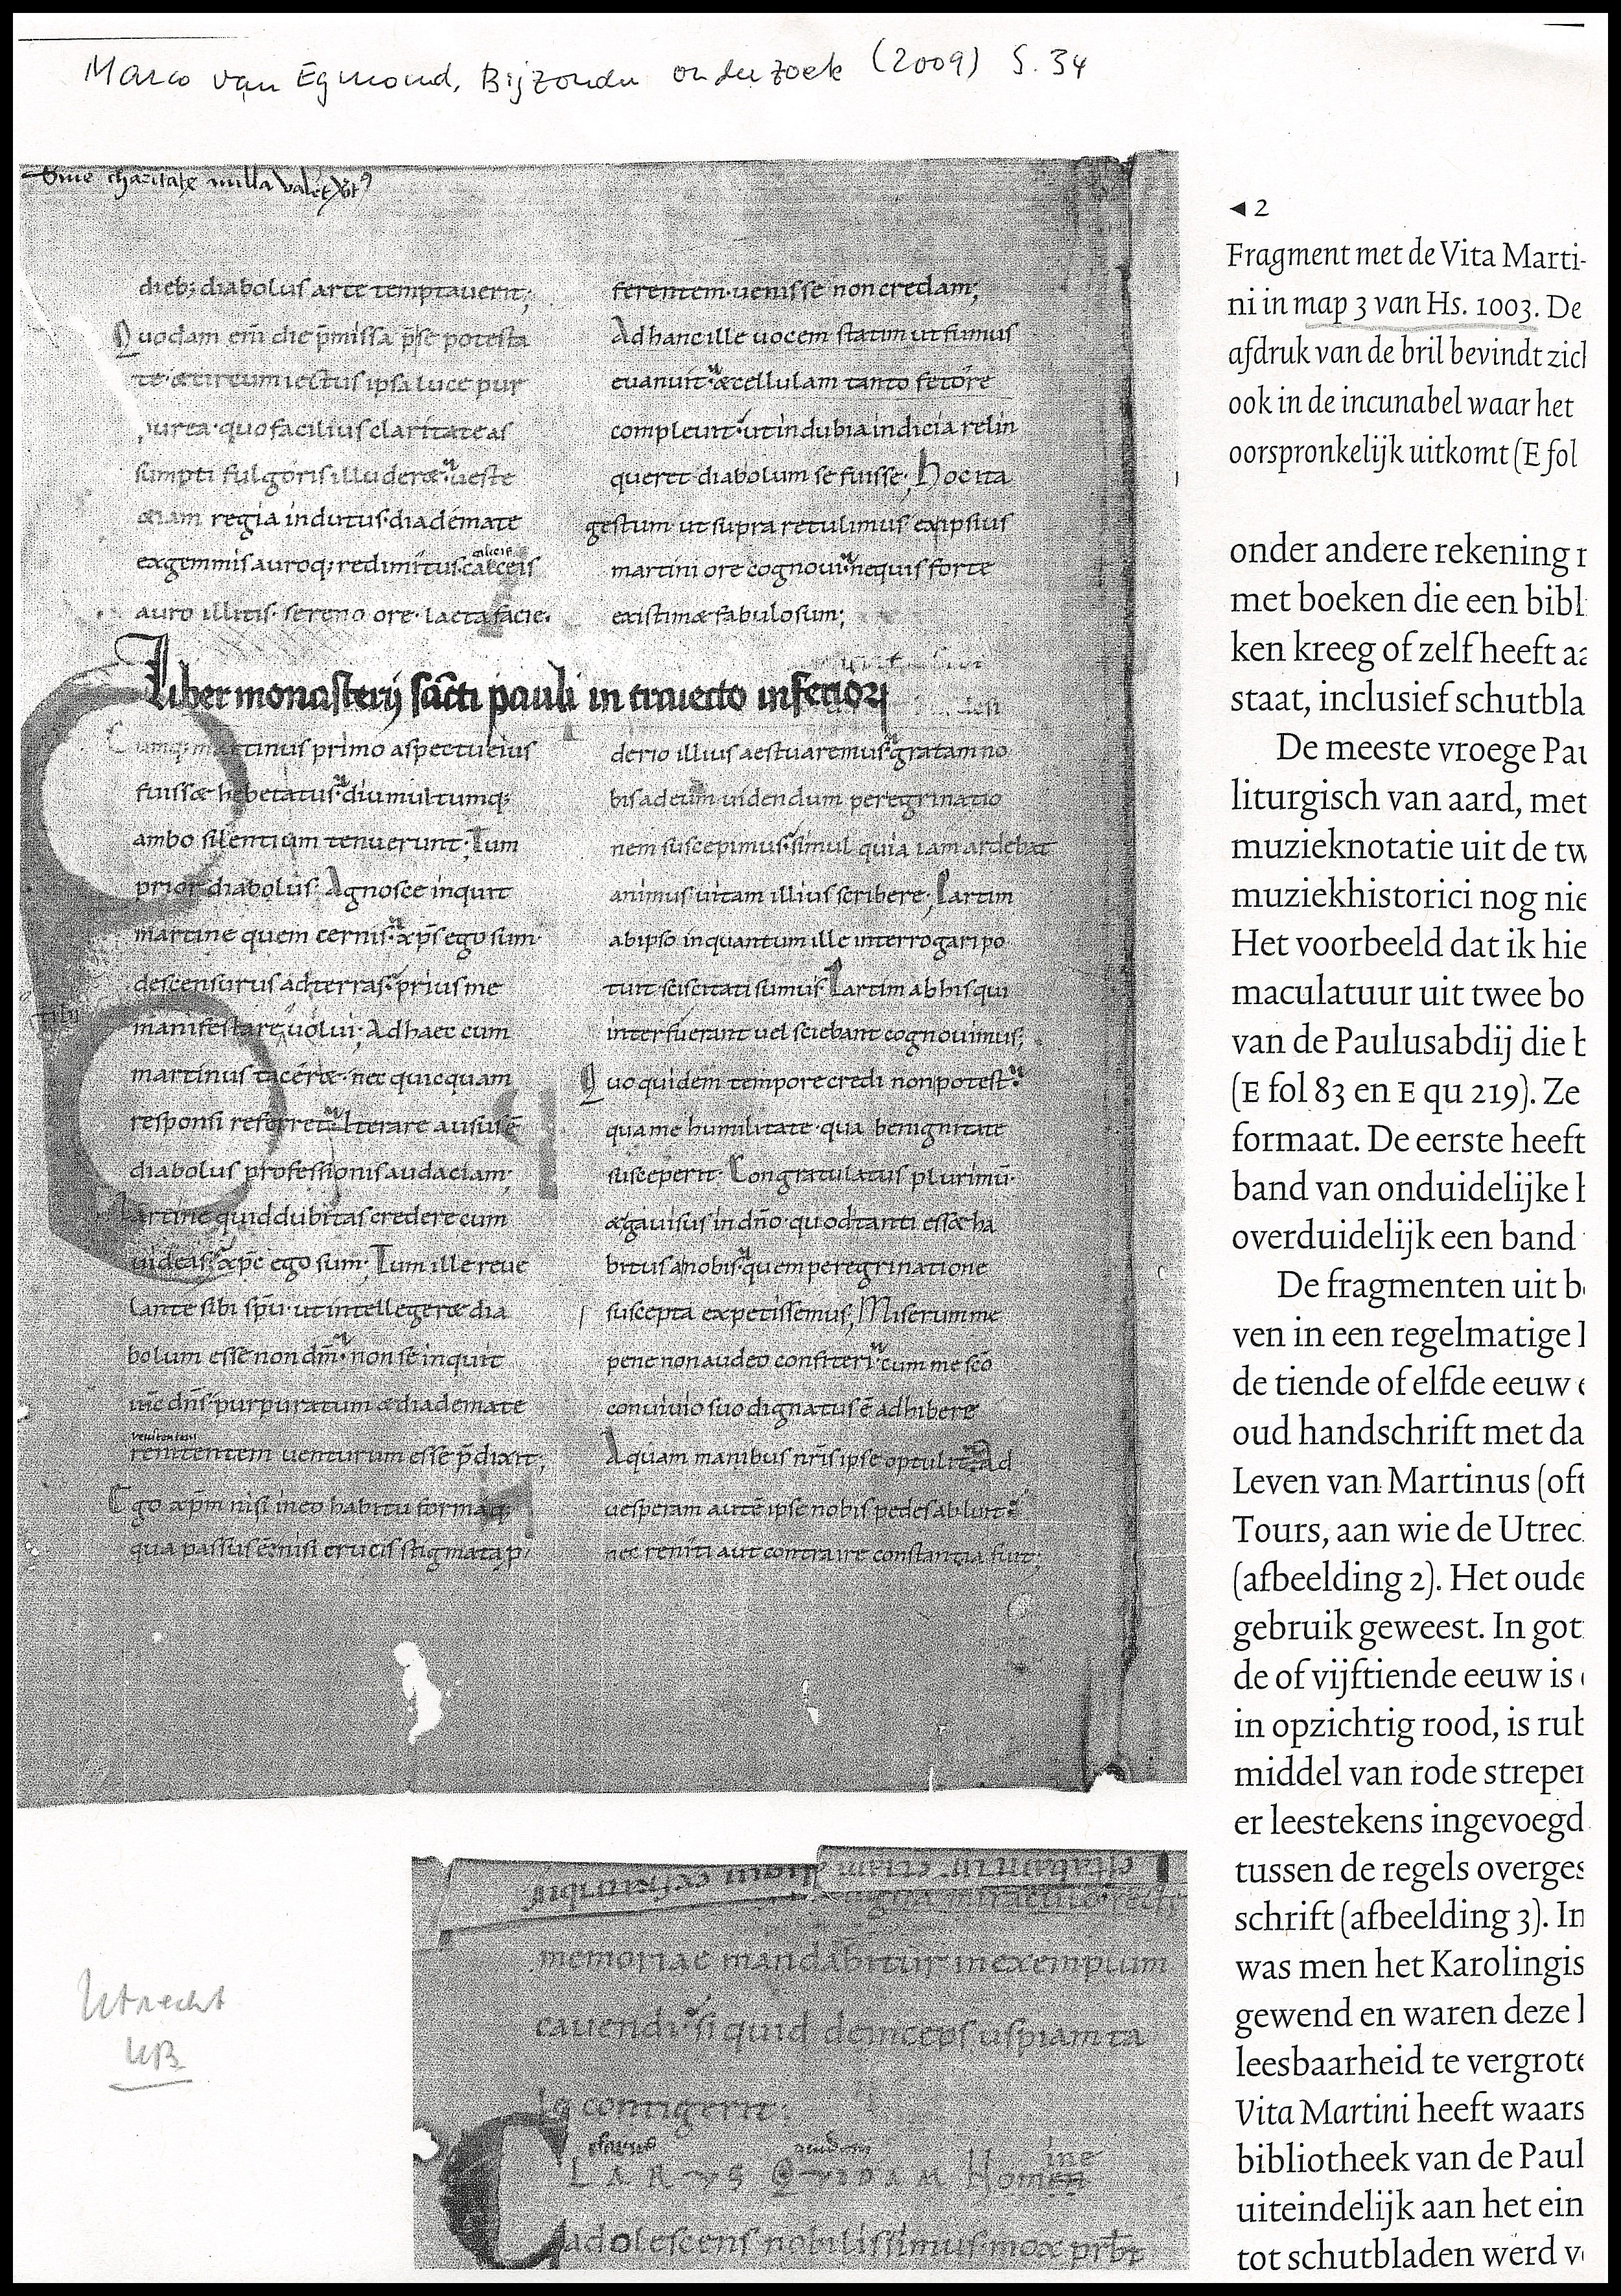 Marco van Egmond, Bijzonder onderzoek (2009) S. 34
Sine charitate nulla valet
dieb; diabolus arte temptauerit;
Quodam em̄ die p̄missa p̄ se potesta
te · & circumiectus ipsa luce pur
purea · quo facilius claritate as
sumpti fulgoris illuder& · ueste
&iam regia indutus · diademate
ex gemmis auroq; redimitus · calceis
auro illitis · sereno ore · laeta facie ·
Liber monasterij sācti pauli in traiecto inferiori
Cumq; martinus primo aspectu eius
fuiss& hebetatus · diu multumq;
ambo silentium tenuerunt; Tum
prior diabolus · Agnosce inquit
martine quem cernis · xp̄s ego sum ·
descensurus ad terras · prius me
manifestare uolui; Ad haec cum
martinus tacer& · nec quicquam
responsi referret · Iterare ausus ē
diabolus professionis audaciam;
Martine quid dubitas credere cum
uideas · xp̄c ego sum · Tum ille reue
lante sibi sp̄u · ut intelleger& dia
bolum esse non dm̄ · non se inquit
ih̄c dn̄s purpuratum & diademate
renitentem uenturum esse p̄dixit;
Ego xp̄m nisi in eo habitu formaq;
qua passus ē · nisi crucis stigmata p
ferentem · uenisse non credam;
Ad hanc ille uocem statim ut fumus
euanuit · & cellulam tanto fetore
compleuit · ut indubia indicia relin
queret diabolum se fuisse; Hoc ita
gestum ut supra retulimus ex ipsius
martini ore cognoui · ne quis forte
existim& fabulosum;
derio illius aestuaremus · gratam no
bis ad eum uidendum peregrinatio
nem suscepimus · simul quia iam ardebat
animus uitam illius scribere; Partim
ab ipso in quantum ille interrogari po
tuit sciscitati sumus · Partim ab his qui
interfuerant uel sciebant cognouimus;
Quo quidem tempore credi non potest ·
qua me humilitate · qua benignitate
susceperit · Congratulatus plurimū ·
& gauisus in dn̄o · quod tanti ess& ha
bitus a nobis · quem peregrinatione
suscepta expetissemus; Miserum me
pene non audeo confiteri · cum me sc̄o
conuiuio suo dignatus ē adhibere
Aquam manibus nr̄is ipse optulit · Ad
uesperam autē ipse nobis pedes abluit ·
nec reniti aut contraire constantia fuit;
◂2
Fragment met de Vita Marti-
ni in map 3 van Hs. 1003. De
afdruk van de bril bevindt zich
ook in de incunabel waar het
oorspronkelijk uitkomt (E fol
onder andere rekening
met boeken die een bibl
ken kreeg of zelf heeft
staat, inclusief schutbla
De meeste vroege Pau
liturgisch van aard, met
muzieknotatie uit de tw
muziekhistorici nog nie
Het voorbeeld dat ik hie
maculatuur uit twee bo
van de Paulusabdij die
(E fol 83 en E qu 219). Ze
formaat. De eerste heeft
band van onduidelijke
overduidelijk een band
De fragmenten uit
ven in een regelmatige
de tiende of elfde eeuw
oud handschrift met da
Leven van Martinus (oft
Tours, aan wie de Utrec
(afbeelding 2). Het oude
gebruik geweest. In got
de of vijftiende eeuw is
in opzichtig rood, is rub
middel van rode strepen
er leestekens ingevoegd
tussen de regels overges
schrift (afbeelding 3). In
was men het Karolingis
gewend en waren deze
leesbaarheid te vergrote
Vita Martini heeft waars
bibliotheek van de Paul
uiteindelijk aan het ein
tot schutbladen werd
memoriae mandabitur in exemplum
cauendi · si quid deinceps uspiam ta
le contigerit;
clarus quidam ine
CLARUS QUIDAM Homen
adolescens nobilissimus · mox prb̄r
Utrecht
UB